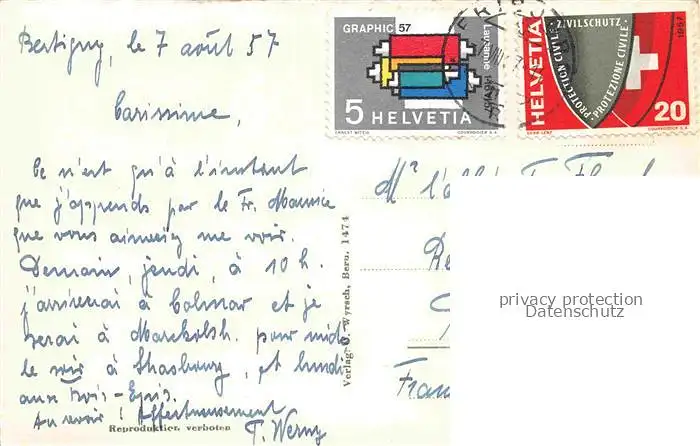 Bertigny, le 7 août 57
Carissime,
Ce n'est qu'à l'instant
que j'apprends par le Fr. Maurice
que vous aimeriez me voir.
Demain, jeudi, à 10 h.
j'arriverai à Colmar et je
serai à Marckolsh. pour midi
le soir à Strasbourg, et lundi
aux Trois-Epis.
Au revoir ! Affectueusement
F. Werny
Reproduktion verboten
Verlag: O. Wyrsch, Bern. 1474
GRAPHIC 57
Lausanne
5 HELVETIA
ERNST WITZIG
COURVOISIER S.A.
HELVETIA
ZIVILSCHUTZ
PROTECTION CIVILE
PROTEZIONE CIVILE
1957
20
COURVOISIER S.A.
Mr l'abbé
Fran
privacy protection
Datenschutz